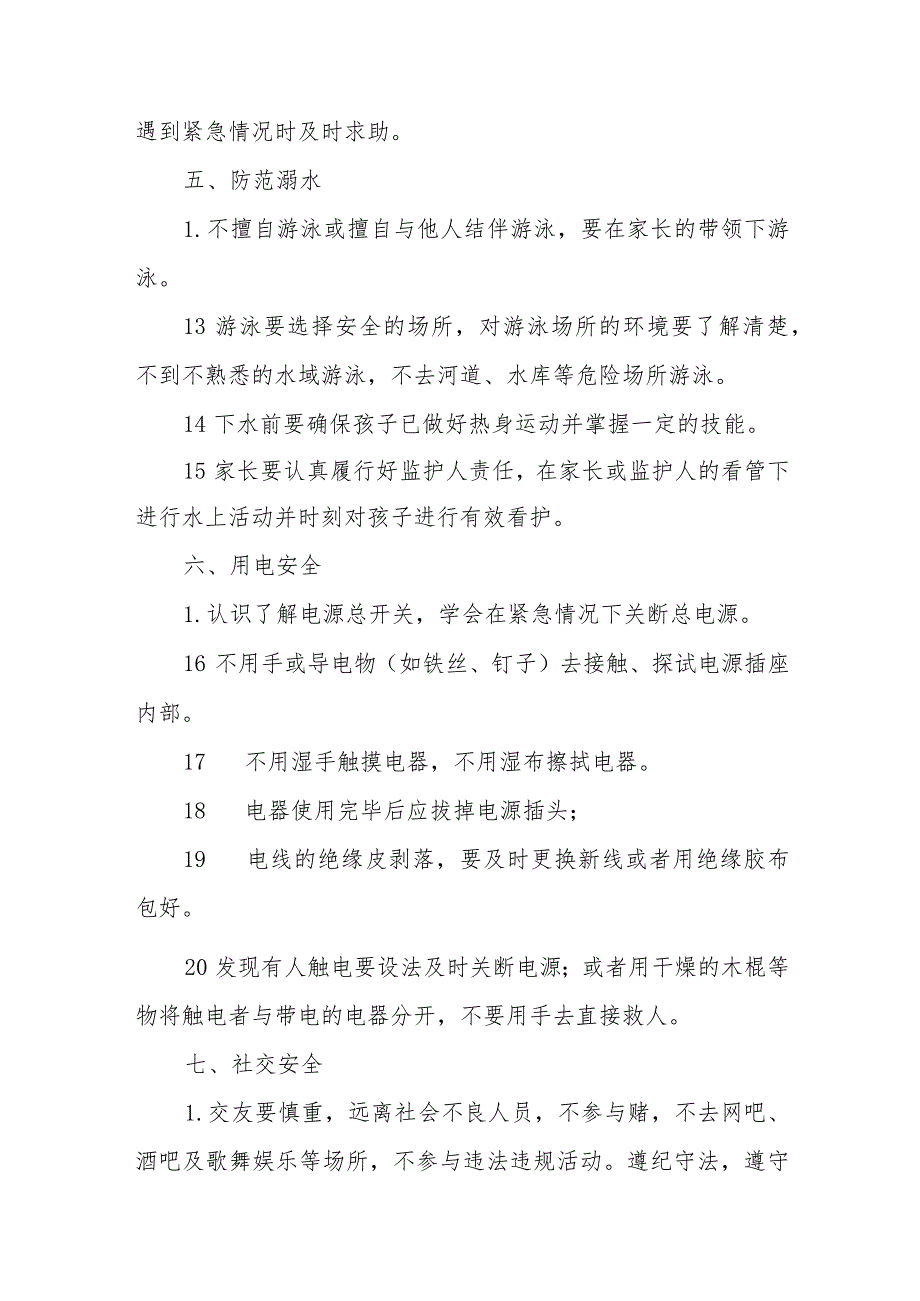 遇到紧急情况时及时求助。
五、防范溺水
1.不擅自游泳或擅自与他人结伴游泳，要在家长的带领下游
泳。
13 游泳要选择安全的场所，对游泳场所的环境要了解清楚，
不到不熟悉的水域游泳，不去河道、水库等危险场所游泳。
14 下水前要确保孩子已做好热身运动并掌握一定的技能。
15 家长要认真履行好监护人责任，在家长或监护人的看管下
进行水上活动并时刻对孩子进行有效看护。
六、用电安全
1.认识了解电源总开关，学会在紧急情况下关断总电源。
16 不用手或导电物（如铁丝、钉子）去接触、探试电源插座
内部。
17 不用湿手触摸电器，不用湿布擦拭电器。
18 电器使用完毕后应拔掉电源插头；
19 电线的绝缘皮剥落，要及时更换新线或者用绝缘胶布
包好。
20 发现有人触电要设法及时关断电源；或者用干燥的木棍等
物将触电者与带电的电器分开，不要用手去直接救人。
七、社交安全
1.交友要慎重，远离社会不良人员，不参与赌，不去网吧、
酒吧及歌舞娱乐等场所，不参与违法违规活动。遵纪守法，遵守